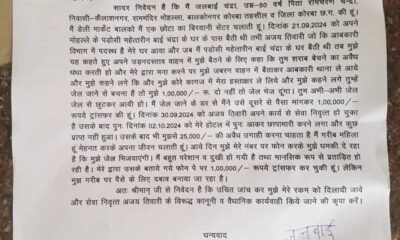 सादर निवेदन है कि मैं जलबाई चंद्रा, उम्र–50 वर्ष पिता रामचरण चन्द्रा,
निवासी–कैलाशनगर, राममंदिर मोहल्ला, बालकोनगर तहसील व जिला कोरबा छ.ग. की हूं।
मैं डेली मार्केट बालको में एक छोटा का बिरयानी सेंटर चलाती हूं। दिनांक 21.09.2024 को अपने
मोहल्ले के पड़ोसी महेतरीन बाई चंद्रा के घर के पास बैठी थी तभी अजय तिवारी जो कि आबकारी
विभाग में पदस्थ है मेरे घर आया और जब मैं पड़ोसी महेतरीन बाई चंद्रा के घर बैठी थी तब मुझे
यह कहते हुए अपने उड़नदस्ताय वाहन में मुझे बैठने के लिए कहा कि तुम शराब बेचने का अवैध
धंधा करती हो और मेरे द्वारा मना करने पर मुझे जबरन वाहन में बैठाकर आबकारी थाना ले आये
और मुझे कहने लगे और मुझे कोरे कागज में मेरा हस्ताक्षर ले लिये और मुझे कहने लगे तुम्हें
जेल जाने से बचना है तो मुझे 1,00,000/– रू. दो नहीं तो जेल भेज दूंगा। तुम अभी–अभी जेल
से छुटकर आयी हो। मैं जेल जाने के डर से मैंने उसे दूसरे से पैसा मांगकर 1,00,000/–
रूपये ट्रांसफर की हूं। दिनांक 30.09.2024 को अजय तिवारी अपने कार्य से सेवा निवृत्त हो चुका
है उसके बाद पुनः दिनांक 02.10.2024 को मेरे होटल में पुनः आकर छापामारी करने लगा और कुछ
प्राप्त नहीं हुआ। उसके बाद भी मुझसे 25,000/– की अवैध उगाही करना चाहता है। मैं गरीब महिला
हूं मेहनत करके अपना जीवन चलाती हूं। आये दिन मुझे मेरे नंबर पर फोन करके मुझे धमकी दे रहा
है कि मुझे जेल भिजवाएंगी। मैं बहुत परेशान व दुखी हो गयी है तथा मानसिक रूप से प्रताड़ित हो
रही है। मेरे द्वारा उसके बताये गये फोन पे पर 1,00,000/– ट्रांसफर कर चुकी हूं। लेकिन
मुझ गरीब पर पैसे के लिए दबाव बनाया जा रहा है।
अतः श्रीमान् जी से निवेदन है कि उचित जांच कर मुझे मेरे रकम को दिलायी जावे
और सेवा निवृत्त अजय तिवारी के विरूद्ध कानूनी व वैधानिक कार्यवाही किये जाने की कृपा करें।
धन्यवाद
जलबाई